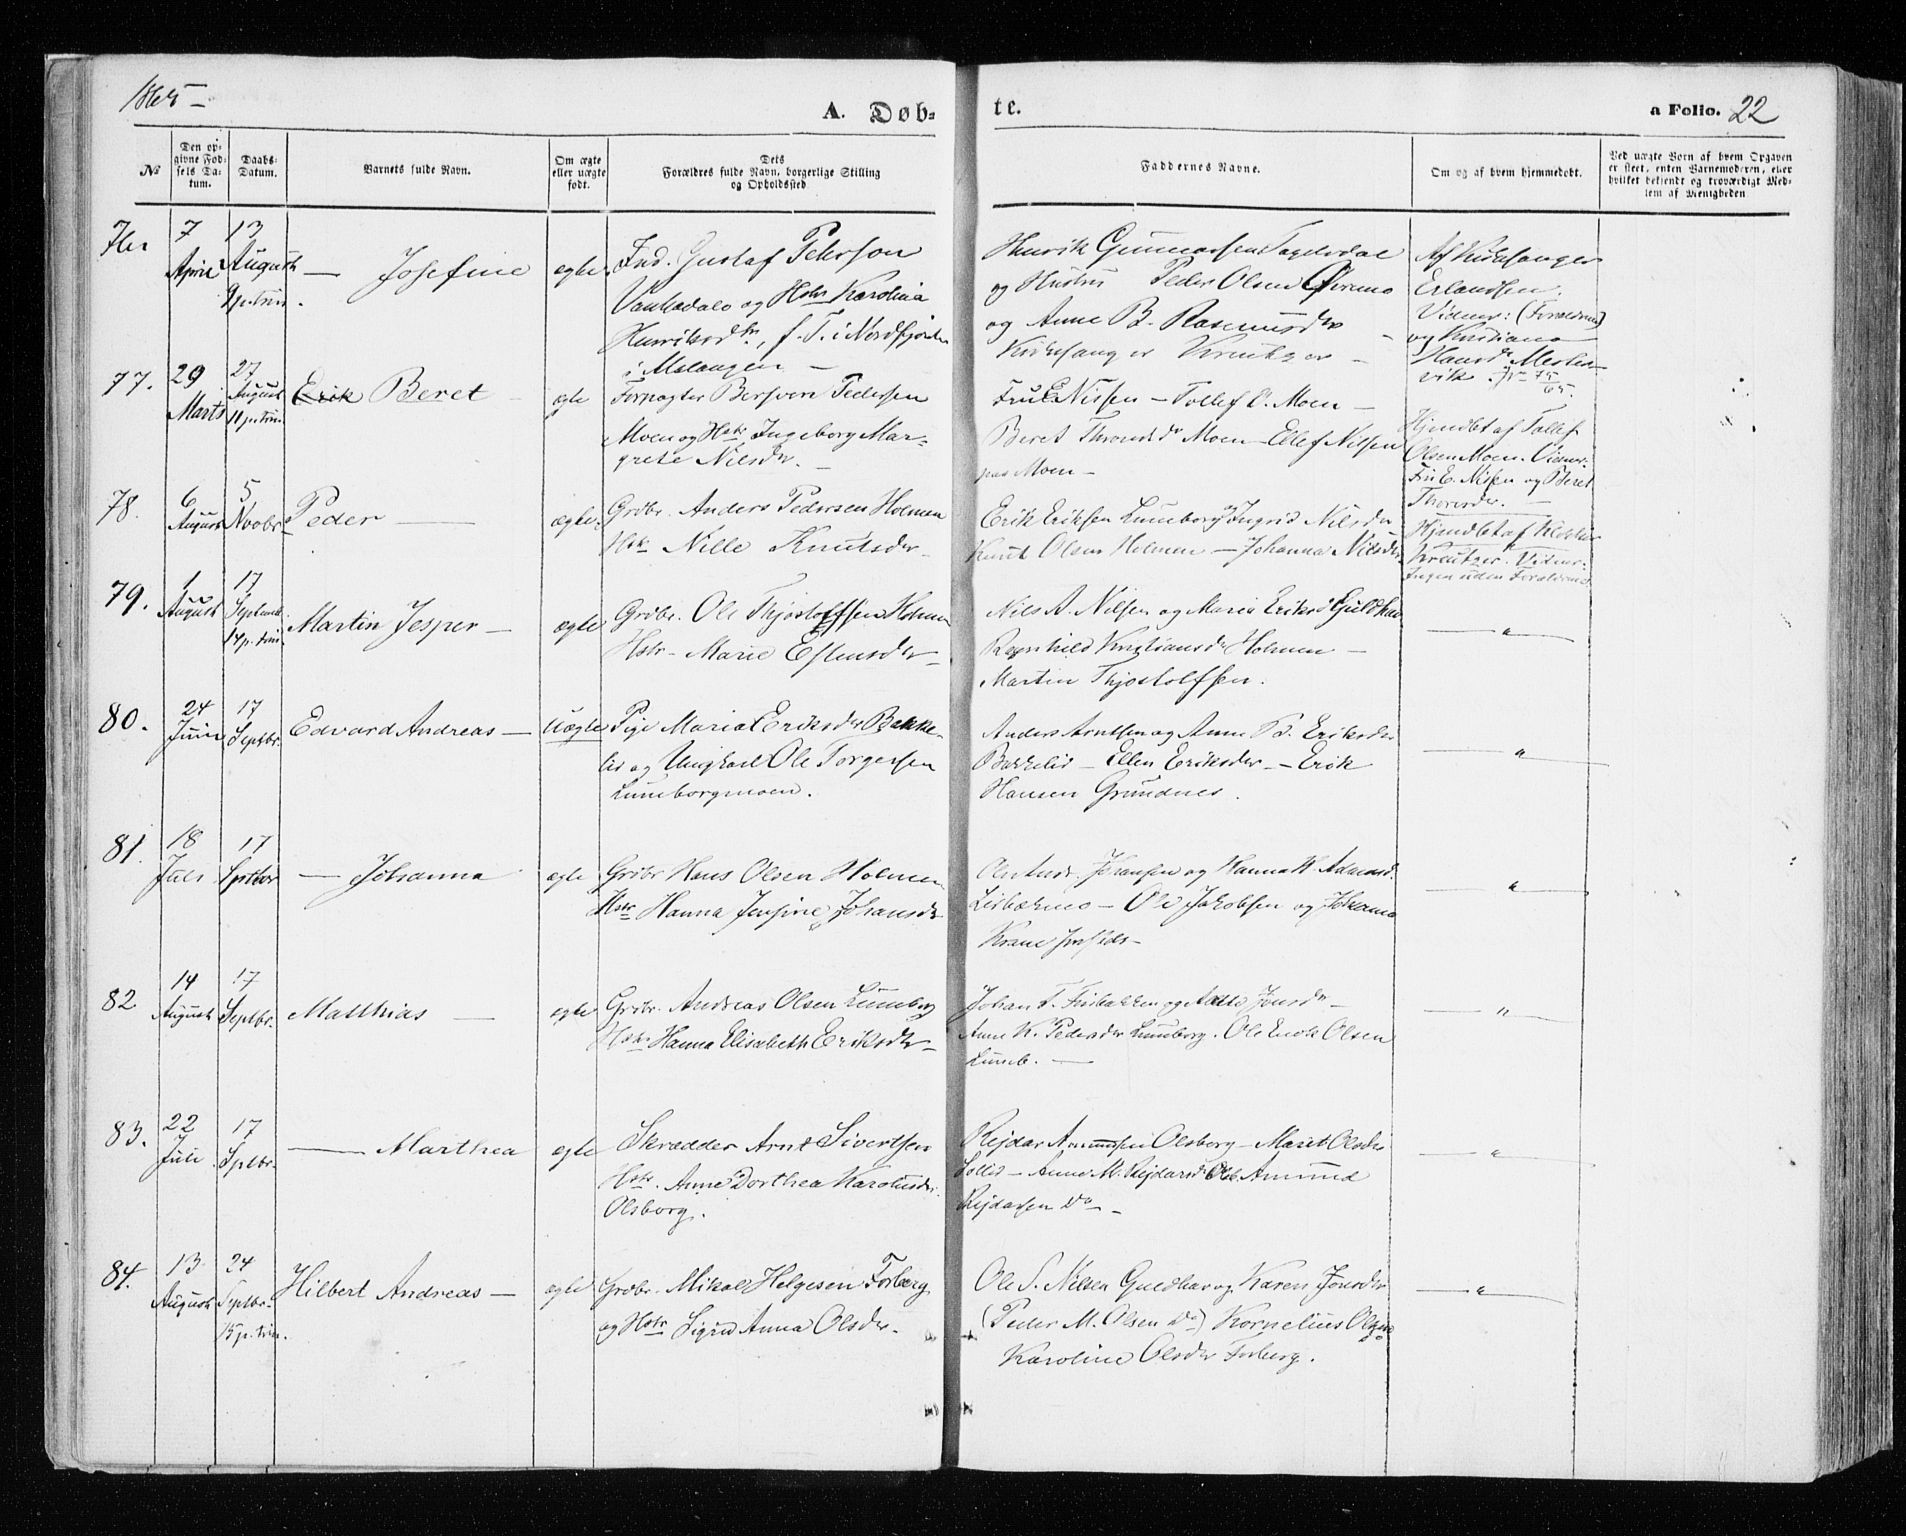 1865 –
A. Døb-
te.
a Folio. 22
№
Den op-
givne Fød-
sels Da-
tum.
Daabs-
Datum.
Barnets fulde Navn.
Om ægte
eller uægte
født.
Dets
Forældres fulde Navn, borgerlige Stilling
og Opholdssted
Faddernes Navne.
Om og af hvem hjemmedøbt.
Ved uægte Børn af hvem Opgaven
er skeet, enten Barnemoderen, eller
hvilket bekjendt og troværdigt Med-
lem af Menigheden
76.
7
April
13
August
9 p. trin.
— Josefine
ægte
Ind. Gustaf Peterson
og Hstr Karolina
f. T. i Nordfjorden
i Malangen —
Henrik Gunnarsen
og Hustru Peder Olsen
og Anne B. Rasmusdr
Kirkesanger Kreutzer –
Af Kirkesanger
Erlandsen.
Vidner: (Forældrene)
og Kristiane
Hansdr
77.
29
Marts
27
August
11 p. trin
Erik Beret
ægte
Forpagter Bersven Pedersen
Moen og Hstr Ingeborg Mar-
grete Nilsdr. –
Fru E. Nissen – Tollef O. Moen –
Beret Thronsdr Moen – Ellef Nilsen
Moen –
Hjemdbt af Tollef
Olsen Moen. Vidner:
Fru E. Nissen og Beret
78.
6
August
5
Novbr
Peder —
ægte
Grdbr. Anders Pedersen Holmen
Hstr Nille Knutsdr –
Erik Eriksen Luneborg, Ingrid Nilsdr
Knut Olsen Holmen – Johanna Nilsdr
Hjemdbt af Klokker
Kreutzer. Vidner:
Ingen uden Forældrene
79.
1
August
17
Septemb.
14 p. trin.
Martin Jesper –
ægte
Grdbr. Ole Thjostolfsen Holmen
Hstr – Marie Estensdr –
Nils A. Nilsen og Maria Eriksd Guldhav
Ragnhild Kristiansdr Holmen –
Martin Thjostolfsen.
– " –
80.
24
Juni
17
Septbr.
Edvard Andreas –
uægte
Pige Maria Eriksdr Bakke-
lid og Ungkarl Ole Torgersen
Luneborgmoen.
Anders Arntsen og Anne B. Eriksdr
Bakkelid – Ellen Eriksdr – Erik
Hansen Grundnes.
– " –
81.
18
Juli
17
Septbr
— Johanna
ægte
Grdbr Hans Olsen Holmen
Hstr Hanna Jensine Johansdr
Johansen og Hanna H. Adamsd.
– Ole Jakobsen og Johanna
– " –
82.
14
August
17
Septbr.
Matthias —
ægte
Grdbr. Andreas Olsen Luneborg
Hstr Hanna Elisabeth Eriksdr –
Johan T. og Jonsdr –
Anne K. Pedersdr Luneborg. Ole Erik Olsen
Luneb. —
– " –
83.
22
Juli
17
Septbr.
— Marthea
ægte
Skrædder Arnt Sivertsen
Hstr. Anne Dorthea Karolusdr.
Olsborg.
Rejdar Amundsen Olsborg – Maret Olsdr
Sollid – Anne M. Rejdarsdr Olsb. Amund
Rejdarsen Do –
– " –
84.
13
August
24
Septbr.
15 p. trin.
Hilbert Andreas –
ægte
Grdbr. Mikal Helgesen Forberg
og Hstr Sigrid Anna Olsdr.
Ole S. Nilsen Guldhav og Karen Jonsdr
(Peder M. Olsen Do) Kornelius Olsen
Karoline Olsdr Forberg.
– " –